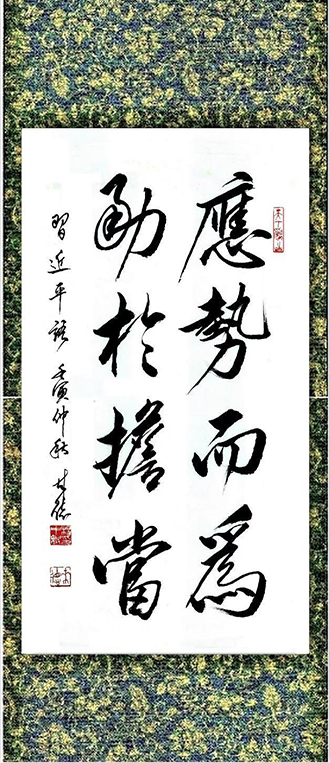 應勢而為
勇於擔當
習近平語 壬寅仲秋